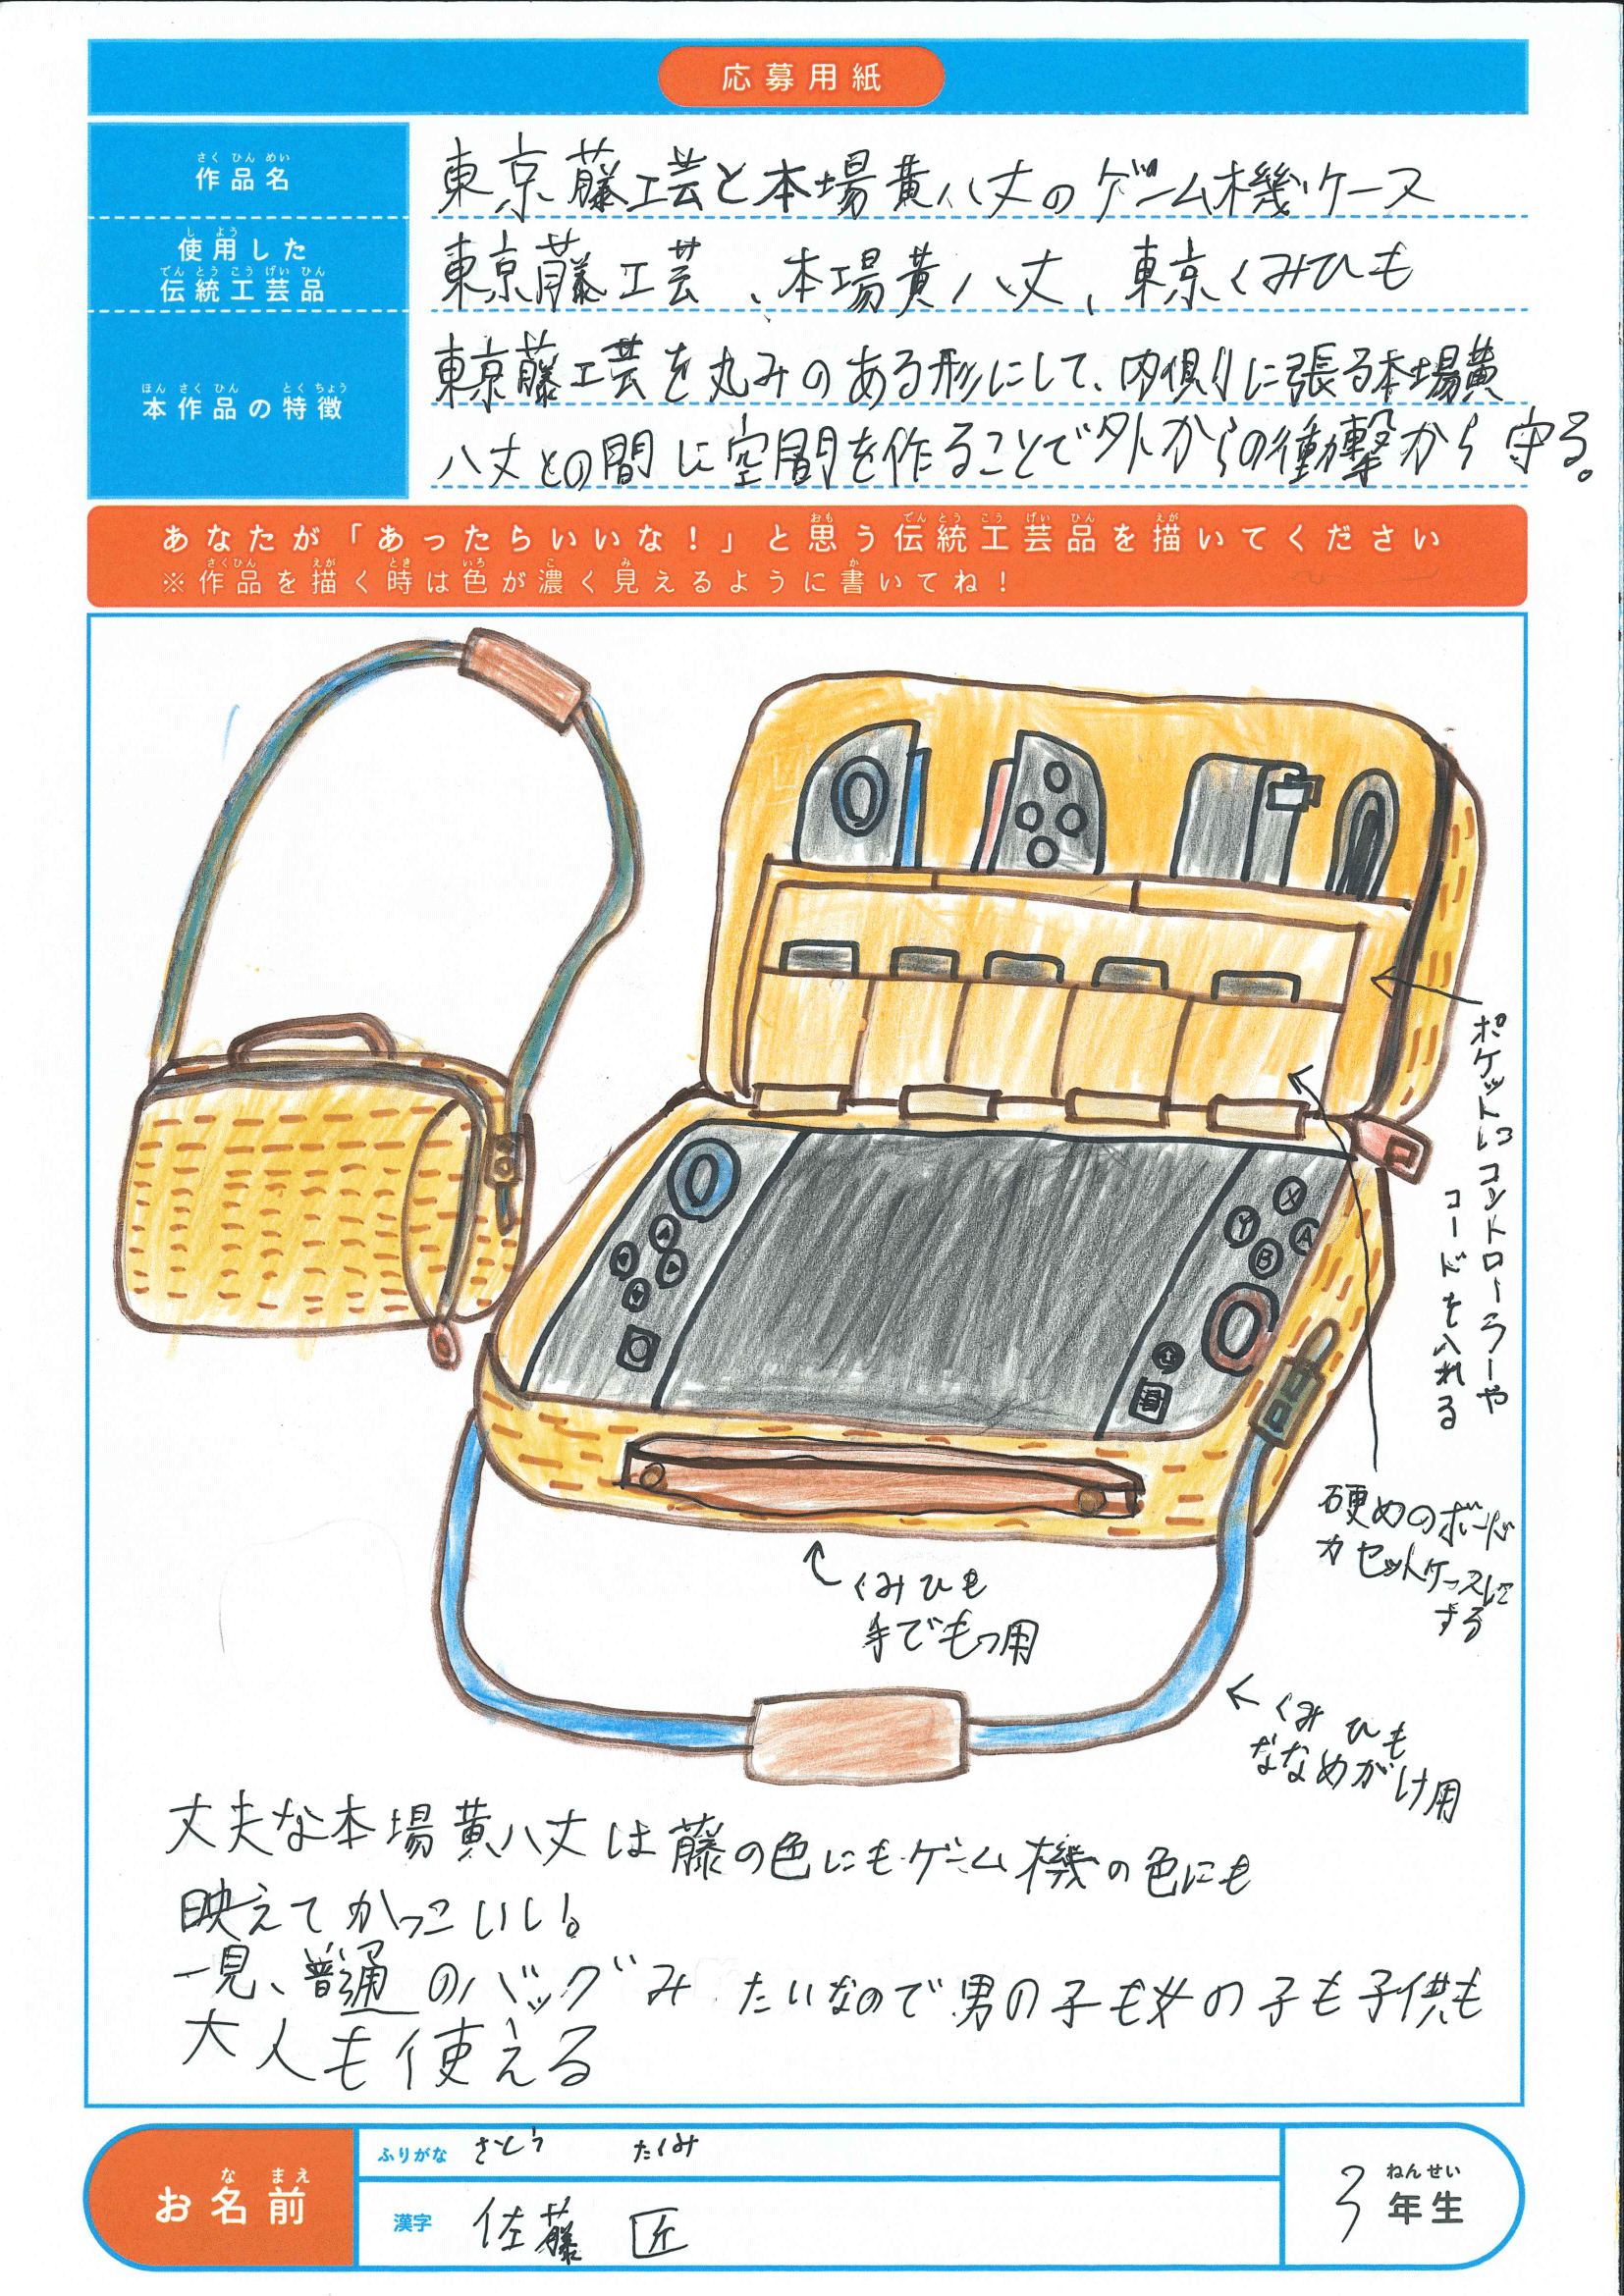 応募用紙
さくひんめい
作品名
東京藤工芸と本場黄八丈のゲーム機ケース
しよう
使用した
でんとうこうげいひん
伝統工芸品
東京藤工芸、本場黄八丈、東京くみひも
ほんさくひん とくちょう
本作品の特徴
東京藤工芸を丸みのある形にして、内側に張る本場黄
八丈との間に空間を作ることで外からの衝撃から守る。
おも でんとうこうげいひん えが
あなたが「あったらいいな！」と思う伝統工芸品を描いてください
さくひん えが とき いろ こ み か
※作品を描く時は色が濃く見えるように書いてね！
ポケットにコントローラーや
コードを入れる
X
Y
A
B
硬めのボード
カセットケースに
する
くみひも
手でもつ用
くみひも
ななめがけ用
丈夫な本場黄八丈は藤の色にもゲーム機の色にも
映えてかっこいい。
一見、普通のバッグみたいなので男の子も女の子も子供も
大人も使える
なまえ
お名前
ふりがな さとう たくみ
漢字 佐藤 匠
ねんせい
3年生